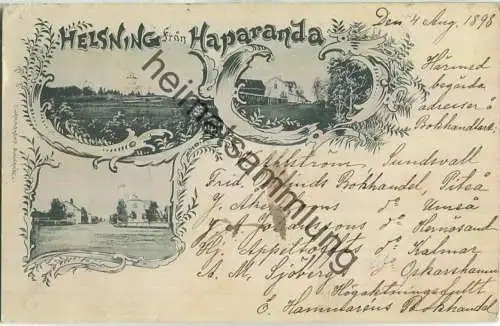 HELSNING från Haparanda
Den 4 Aug. 1898
Härmed
begäras
adresser å
Bokhandlare
Sundsvall
Frid. Bokhandel, Piteå
J. d:o Umeå
J. A. d:o Hernösand
Hj. Appeltofts d:o Kalmar
A. M. Sjöberg d:o Oskarshamn
Högaktningsfullt
E. Hammaréns Bokhandel
heimatsammlung